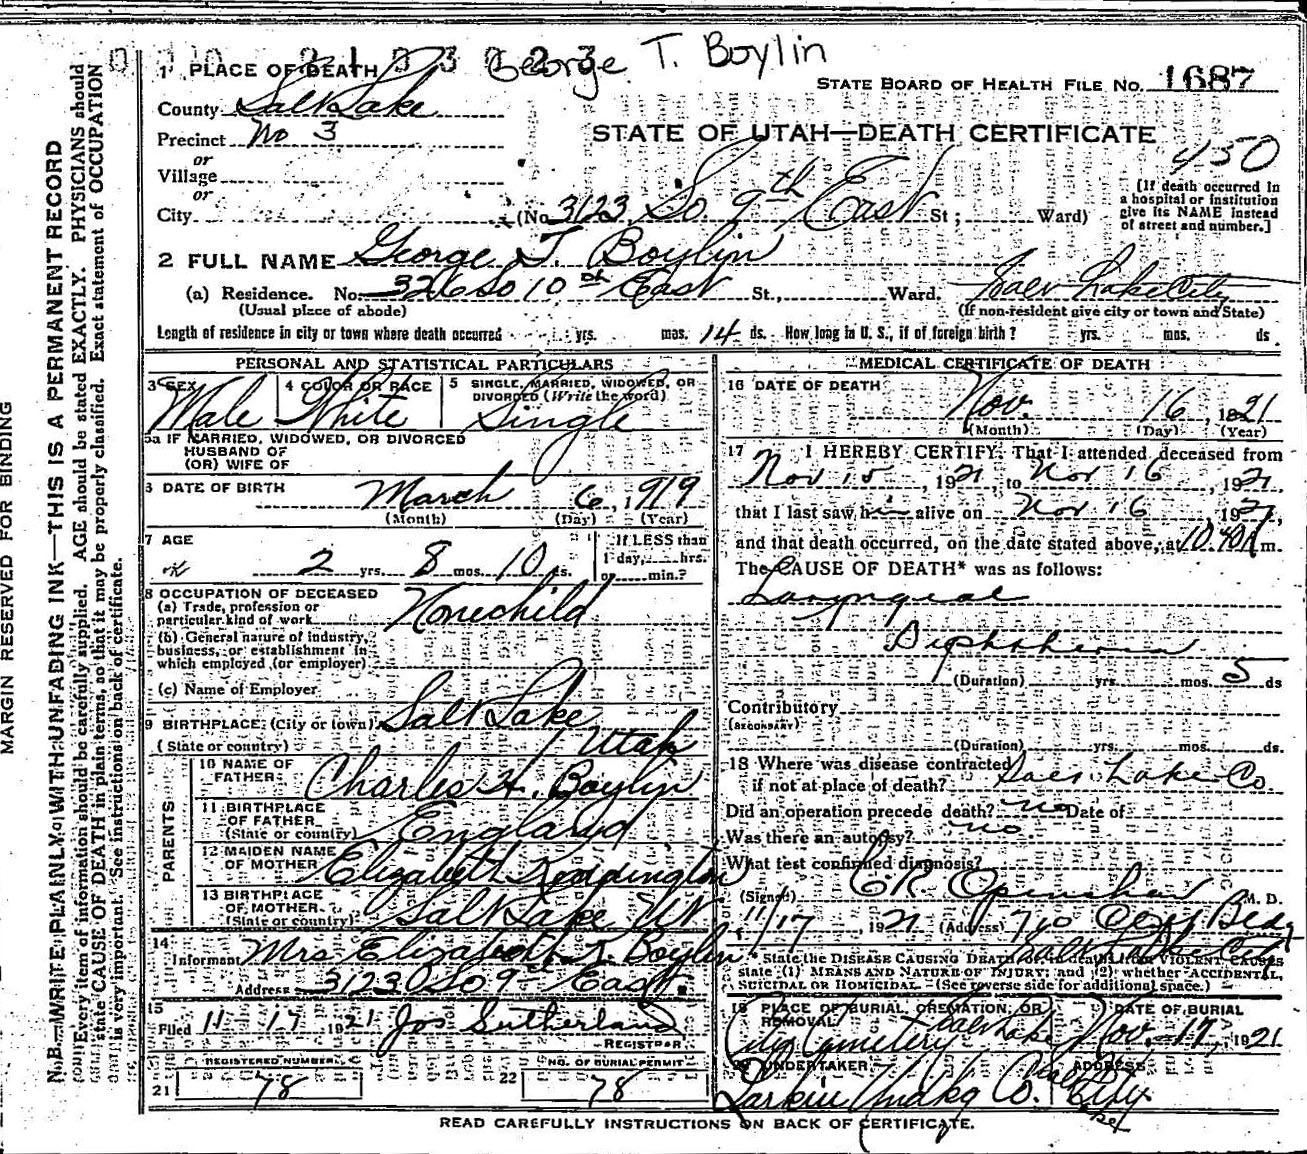 George T. Boylin
1 PLACE OF DEATH
STATE BOARD OF HEALTH FILE NO. 1687
County Salt Lake
STATE OF UTAH—DEATH CERTIFICATE
Precinct No 3
450
or
Village
or
City (No. 3123 So. 9th East St; Ward)
[If death occurred in a hospital or institution give its NAME instead of street and number.]
2 FULL NAME George T. Boylin
(a) Residence. No. 326 So 10th East St., Ward. Salt Lake City
(Usual place of abode) (If non-resident give city or town and State)
Length of residence in city or town where death occurred yrs. mos. 14 ds. How long in U. S., if of foreign birth? yrs. mos. ds.
PERSONAL AND STATISTICAL PARTICULARS
3 SEX 4 COLOR OR RACE 5 SINGLE, MARRIED, WIDOWED, OR DIVORCED (Write the word)
Male White Single
5a IF MARRIED, WIDOWED, OR DIVORCED
HUSBAND OF
(OR) WIFE OF
DATE OF BIRTH
March 6, 1919
(Month) (Day) (Year)
7 AGE
If LESS than
1 day, hrs.
or min.?
2 yrs. 8 mos. 10 ds.
8 OCCUPATION OF DECEASED
(a) Trade, profession or particular kind of work None child
(b) General nature of industry, business, or establishment in which employed (or employer)
(c) Name of Employer
9 BIRTHPLACE (City or town) Salt Lake
(State or country) Utah
PARENTS
10 NAME OF FATHER Charles H. Boylin
11 BIRTHPLACE OF FATHER (State or country) England
12 MAIDEN NAME OF MOTHER Elizabeth Roddington
13 BIRTHPLACE OF MOTHER (State or country) Salt Lake Ut
14 Informant Mrs Elizabeth R. Boylin
Address 3123 So 9th East
15 Filed 11 17 1921 Jos Sutherland
REGISTRAR
REGISTERED NUMBER NO. OF BURIAL PERMIT
21 78 22 78
MEDICAL CERTIFICATE OF DEATH
16 DATE OF DEATH
Nov. 16, 1921
(Month) (Day) (Year)
17 I HEREBY CERTIFY, That I attended deceased from
Nov 15, 1921, to Nov 16, 1921,
that I last saw him alive on Nov 16, 1921,
and that death occurred, on the date stated above, at 10.40 A m.
The CAUSE OF DEATH* was as follows:
Laryngeal
Diphtheria
(Duration) yrs. mos. 5 ds
Contributory
(SECONDARY)
(Duration) yrs. mos. ds.
18 Where was disease contracted
if not at place of death? Salt Lake Co.
Did an operation precede death? no Date of
Was there an autopsy? no.
What test confirmed diagnosis?
(Signed) C R Openshaw M. D.
11/17, 1921 (Address) Bldg
Salt Lake City
*State the DISEASE CAUSING DEATH, or in deaths from VIOLENT CAUSES
state (1) MEANS AND NATURE OF INJURY; and (2) whether ACCIDENTAL,
SUICIDAL OR HOMICIDAL. (See reverse side for additional space.)
19 PLACE OF BURIAL, CREMATION, OR REMOVAL DATE OF BURIAL
City Cemetery Salt Lake Nov. 17, 1921
20 UNDERTAKER ADDRESS
Larkin Undkg Co. Salt Lake City
READ CAREFULLY INSTRUCTIONS ON BACK OF CERTIFICATE.
MARGIN RESERVED FOR BINDING
N. B.—WRITE PLAINLY WITH UNFADING INK—THIS IS A PERMANENT RECORD
Every item of information should be carefully supplied. AGE should be stated EXACTLY. PHYSICIANS should
state CAUSE OF DEATH in plain terms, so that it may be properly classified. Exact statement of OCCUPATION
is very important. See instructions on back of certificate.